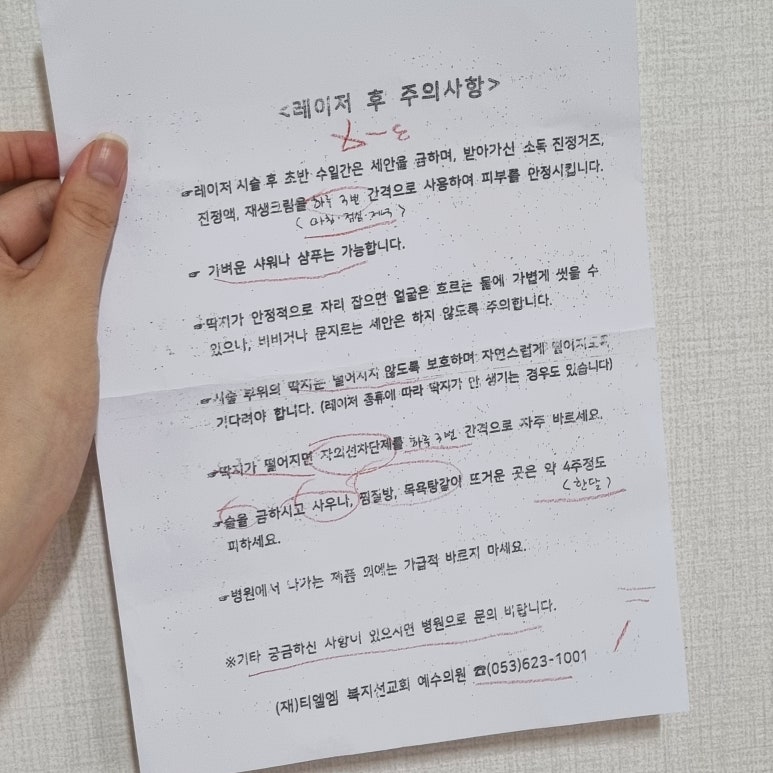 <레이저 후 주의사항>
☞레이저 시술 후 초반 수일간은 세안을 금하며, 받아가신 소독 진정거즈,
진정액, 재생크림을 하루 3번 간격으로 사용하여 피부를 안정시킵니다.
(아침·점심·저녁)
☞ 가벼운 샤워나 샴푸는 가능합니다.
☞딱지가 안정적으로 자리 잡으면 얼굴은 흐르는 물에 가볍게 씻을 수
있으나, 비비거나 문지르는 세안은 하지 않도록 주의합니다.
☞시술 부위의 딱지는 떨어지지 않도록 보호하며 자연스럽게 떨어지도록
기다려야 합니다. (레이저 종류에 따라 딱지가 안 생기는 경우도 있습니다)
☞딱지가 떨어지면 자외선차단제를 하루 3번 간격으로 자주 바르세요.
☞술을 금하시고 사우나, 찜질방, 목욕탕같이 뜨거운 곳은 약 4주정도
(한달)
피하세요.
☞병원에서 나가는 제품 외에는 가급적 바르지 마세요.
※기타 궁금하신 사항이 있으시면 병원으로 문의 바랍니다.
(재)티엘엠 복지선교회 예수의원 ☎(053)623-1001